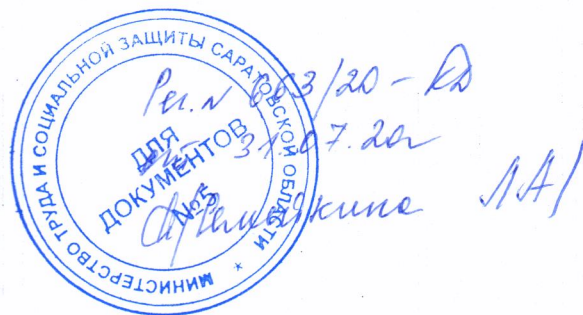 МИНИСТЕРСТВО ТРУДА И СОЦИАЛЬНОЙ ЗАЩИТЫ САРАТОВСКОЙ ОБЛАСТИ *
ДЛЯ
ДОКУМЕНТОВ
№5
Рег. N 663/20 - КД
31.07.20г
Л.А/